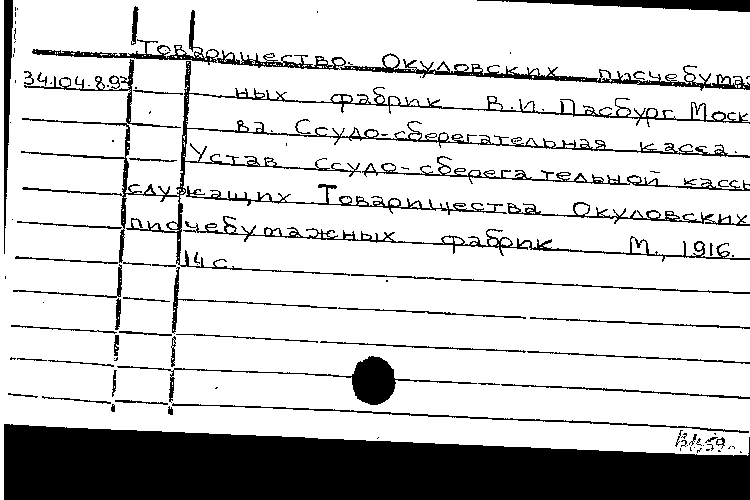 Товарищество Окуловских писчебумаж
34.104.8.93
ных фабрик В.И. Пасбург. Моск
ва. Ссудо-сберегательная касса.
Устав ссудо-сберегательной кассы
служащих Товарищества Окуловских
писчебумажных фабрик М., 1916.
14 с.